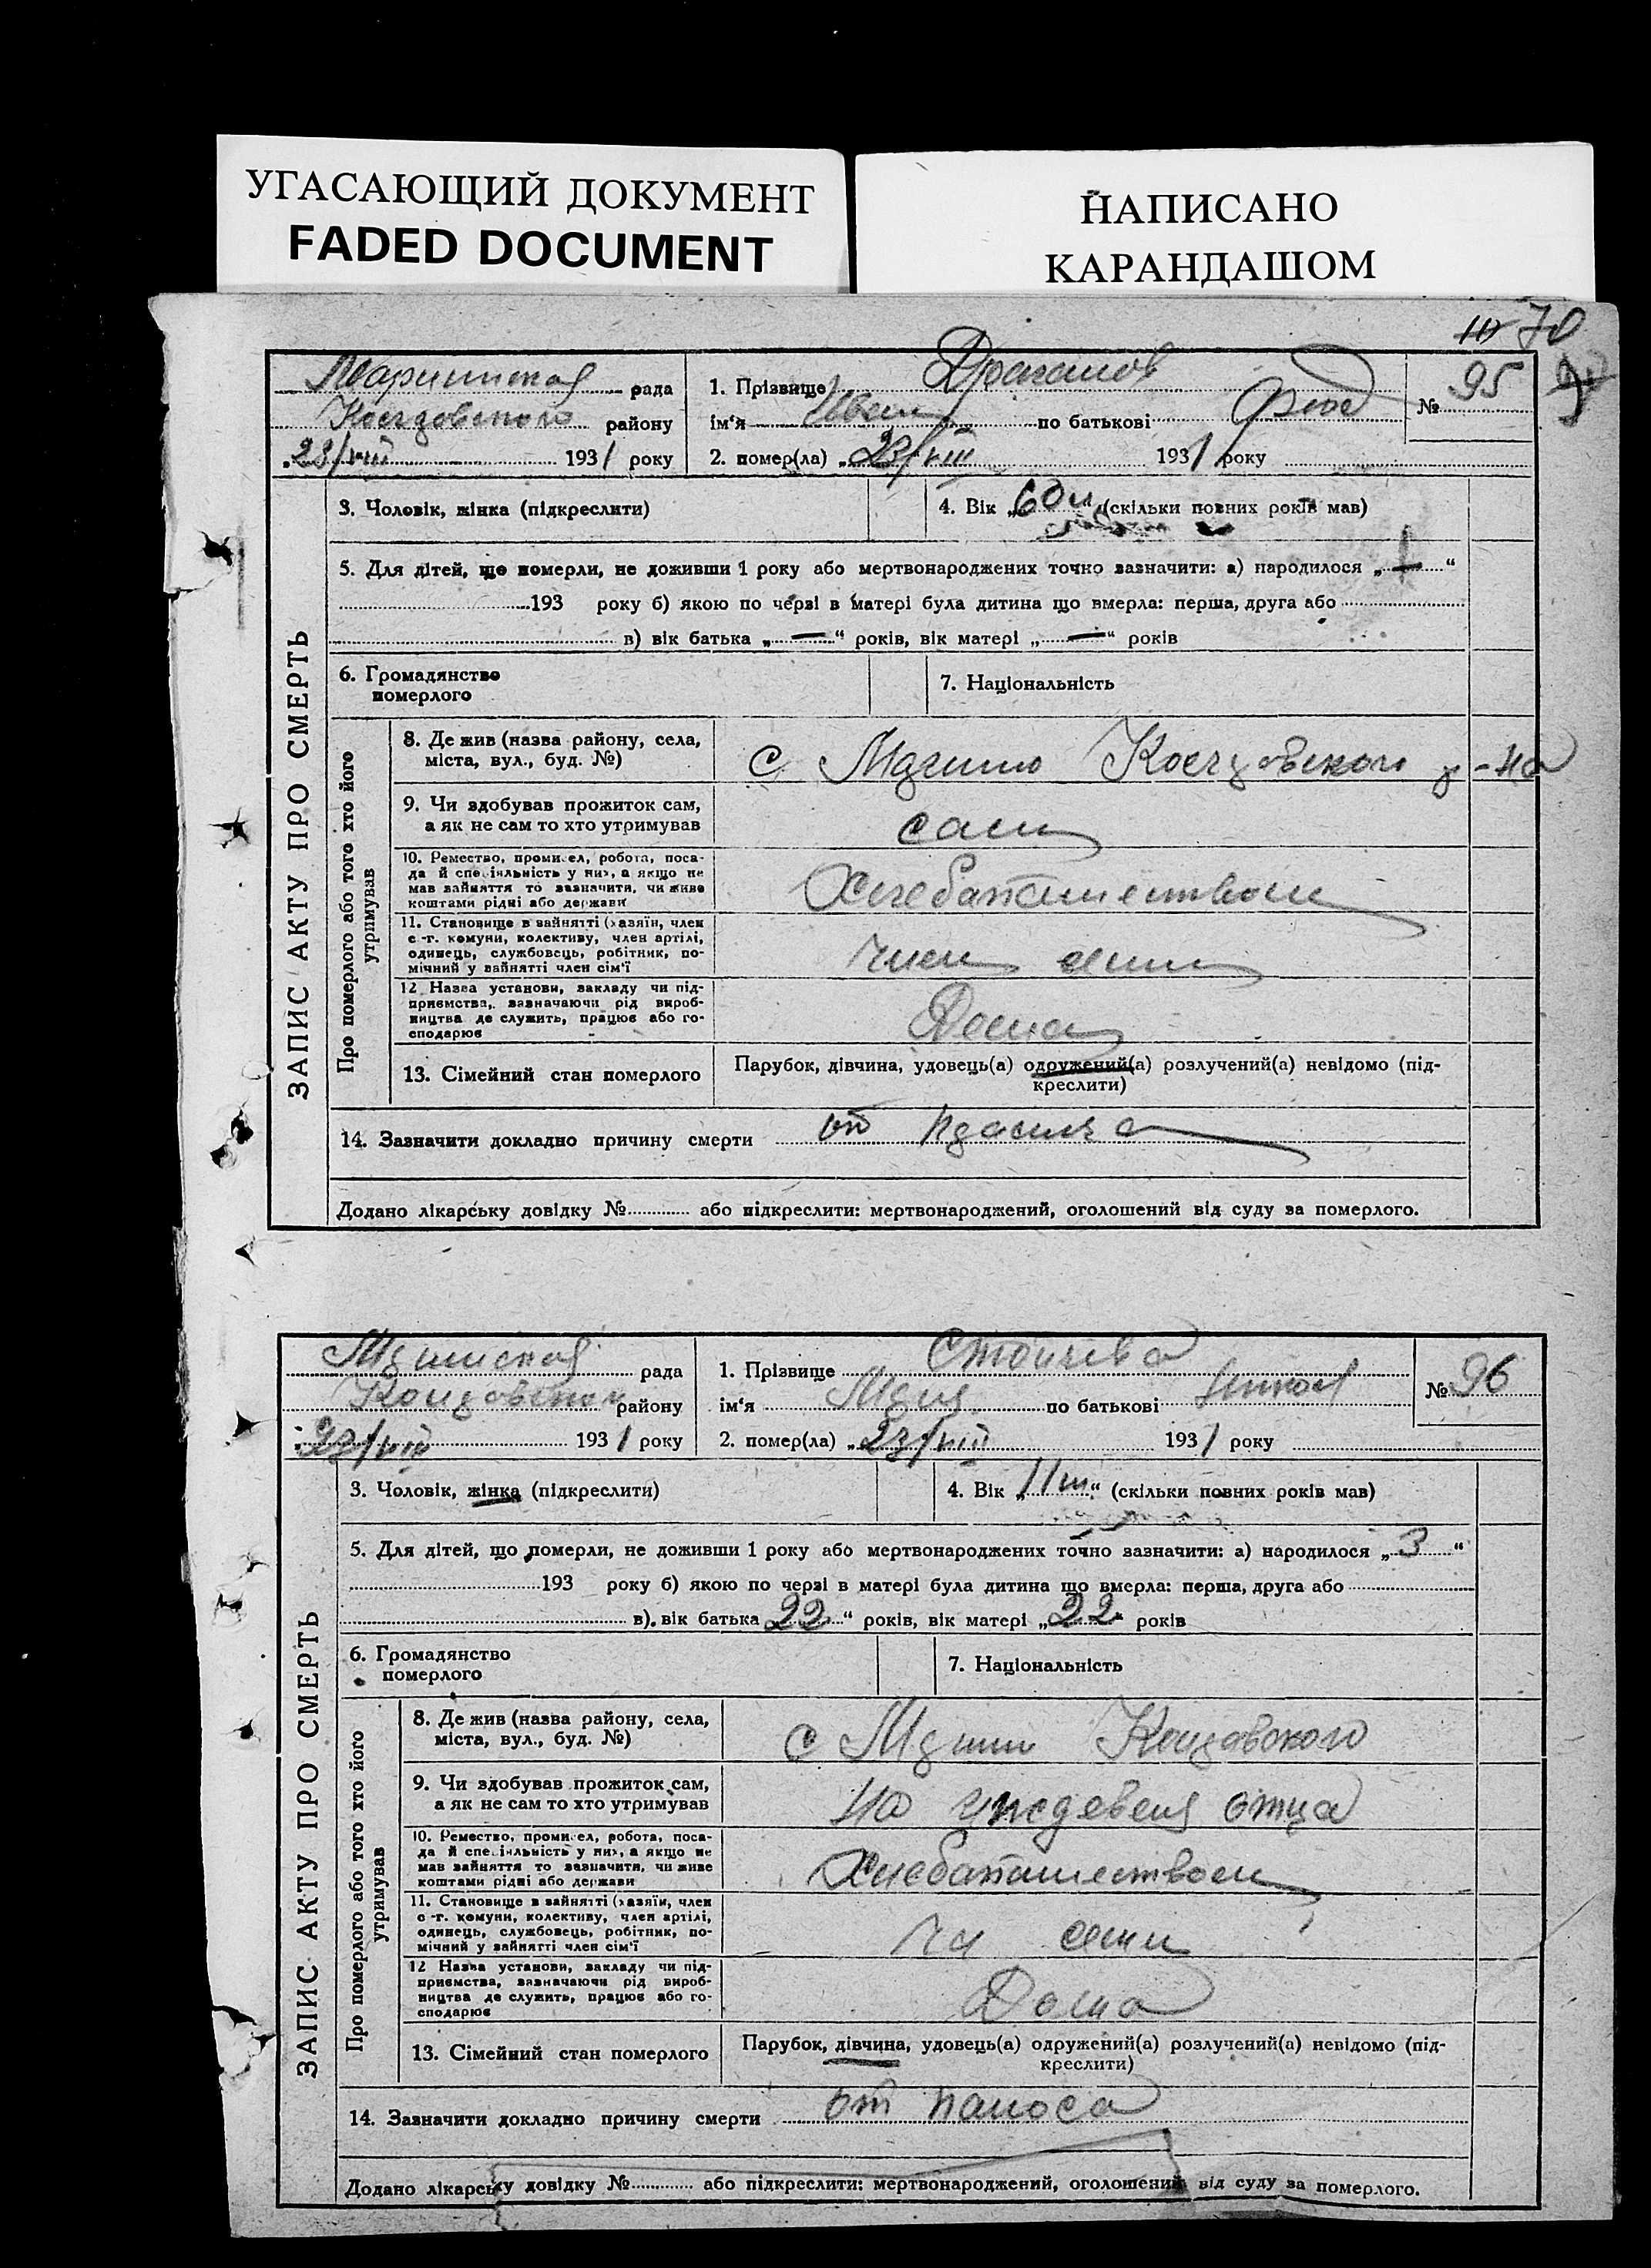 УГАСАЮЩИЙ ДОКУМЕНТ
FADED DOCUMENT
НАПИСАНО
КАРАНДАШОМ
70
рада
району
23/VIII 1931 року
1. Прізвище Драганов
ім'я Иван по батькові Феод
№ 95
2. помер(ла) „23/VIII 1931 року
ЗАПИС АКТУ ПРО СМЕРТЬ
3. Чоловік, жінка (підкреслити)
4. Вік „60и“ (скільки повних років мав)
5. Для дітей, що померли, не доживши 1 року або мертвонароджених точно зазначити: а) народилося „—“
193 року б) якою по черзі в матері була дитина що вмерла: перша, друга або
в) вік батька „—“ років, вік матері „—“ років
6. Громадянство
померлого
7. Національність
Про померлого або того хто його
утримував
8. Де жив (назва району, села,
міста, вул., буд. №)
с р-на
9. Чи здобував прожиток сам,
а як не сам то хто утримував
сам
10. Ремество, промисел, робота, поса-
да й спеціяльність у них, а якщо не
мав зайняття то зазначити, чи живе
коштами рідні або держави
Хлебопашеством
11. Становище в зайнятті (хазяїн, член
с.-г. комуни, колективу, член артілі,
одинець, службовець, робітник, по-
мічний у зайнятті член сім'ї
член
12 Назва установи, закладу чи під-
приємства, зазначаючи рід вироб-
ництва де служить, працює або го-
сподарює
Дома
13. Сімейний стан померлого
Парубок, дівчина, удовець(а) одружений(а) розлучений(а) невідомо (під-
креслити)
14. Зазначити докладно причину смерти от
Додано лікарську довідку № або підкреслити: мертвонароджений, оголошений від суду за померлого.
рада
району
23/VIII 1931 року
1. Прізвище Стойчева
ім'я по батькові Никол
№ 96
2. помер(ла) „23/VIII 1931 року
ЗАПИС АКТУ ПРО СМЕРТЬ
3. Чоловік, жінка (підкреслити)
4. Вік „11м“ (скільки повних років мав)
5. Для дітей, що померли, не доживши 1 року або мертвонароджених точно зазначити: а) народилося „3“
193 року б) якою по черзі в матері була дитина що вмерла: перша, друга або
в). вік батька 22“ років, вік матері „22“ років
6. Громадянство
померлого
7. Національність
Про померлого або того хто його
утримував
8. Де жив (назва району, села,
міста, вул., буд. №)
с
9. Чи здобував прожиток сам,
а як не сам то хто утримував
на отца
10. Ремество, промисел, робота, поса-
да й спеціяльність у них, а якщо не
мав зайняття то зазначити, чи живе
коштами рідні або держави
Хлебопашеством
11. Становище в зайнятті (хазяїн, член
с.-г. комуни, колективу, член артілі,
одинець, службовець, робітник, по-
мічний у зайнятті член сім'ї
12 Назва установи, закладу чи під-
приємства, зазначаючи рід вироб-
ництва де служить, працює або го-
сподарює
Дома
13. Сімейний стан померлого
Парубок, дівчина, удовець(а) одружений(а) розлучений(а) невідомо (під-
креслити)
14. Зазначити докладно причину смерти от паноса
Додано лікарську довідку № або підкреслити: мертвонароджений, оголошений від суду за померлого.